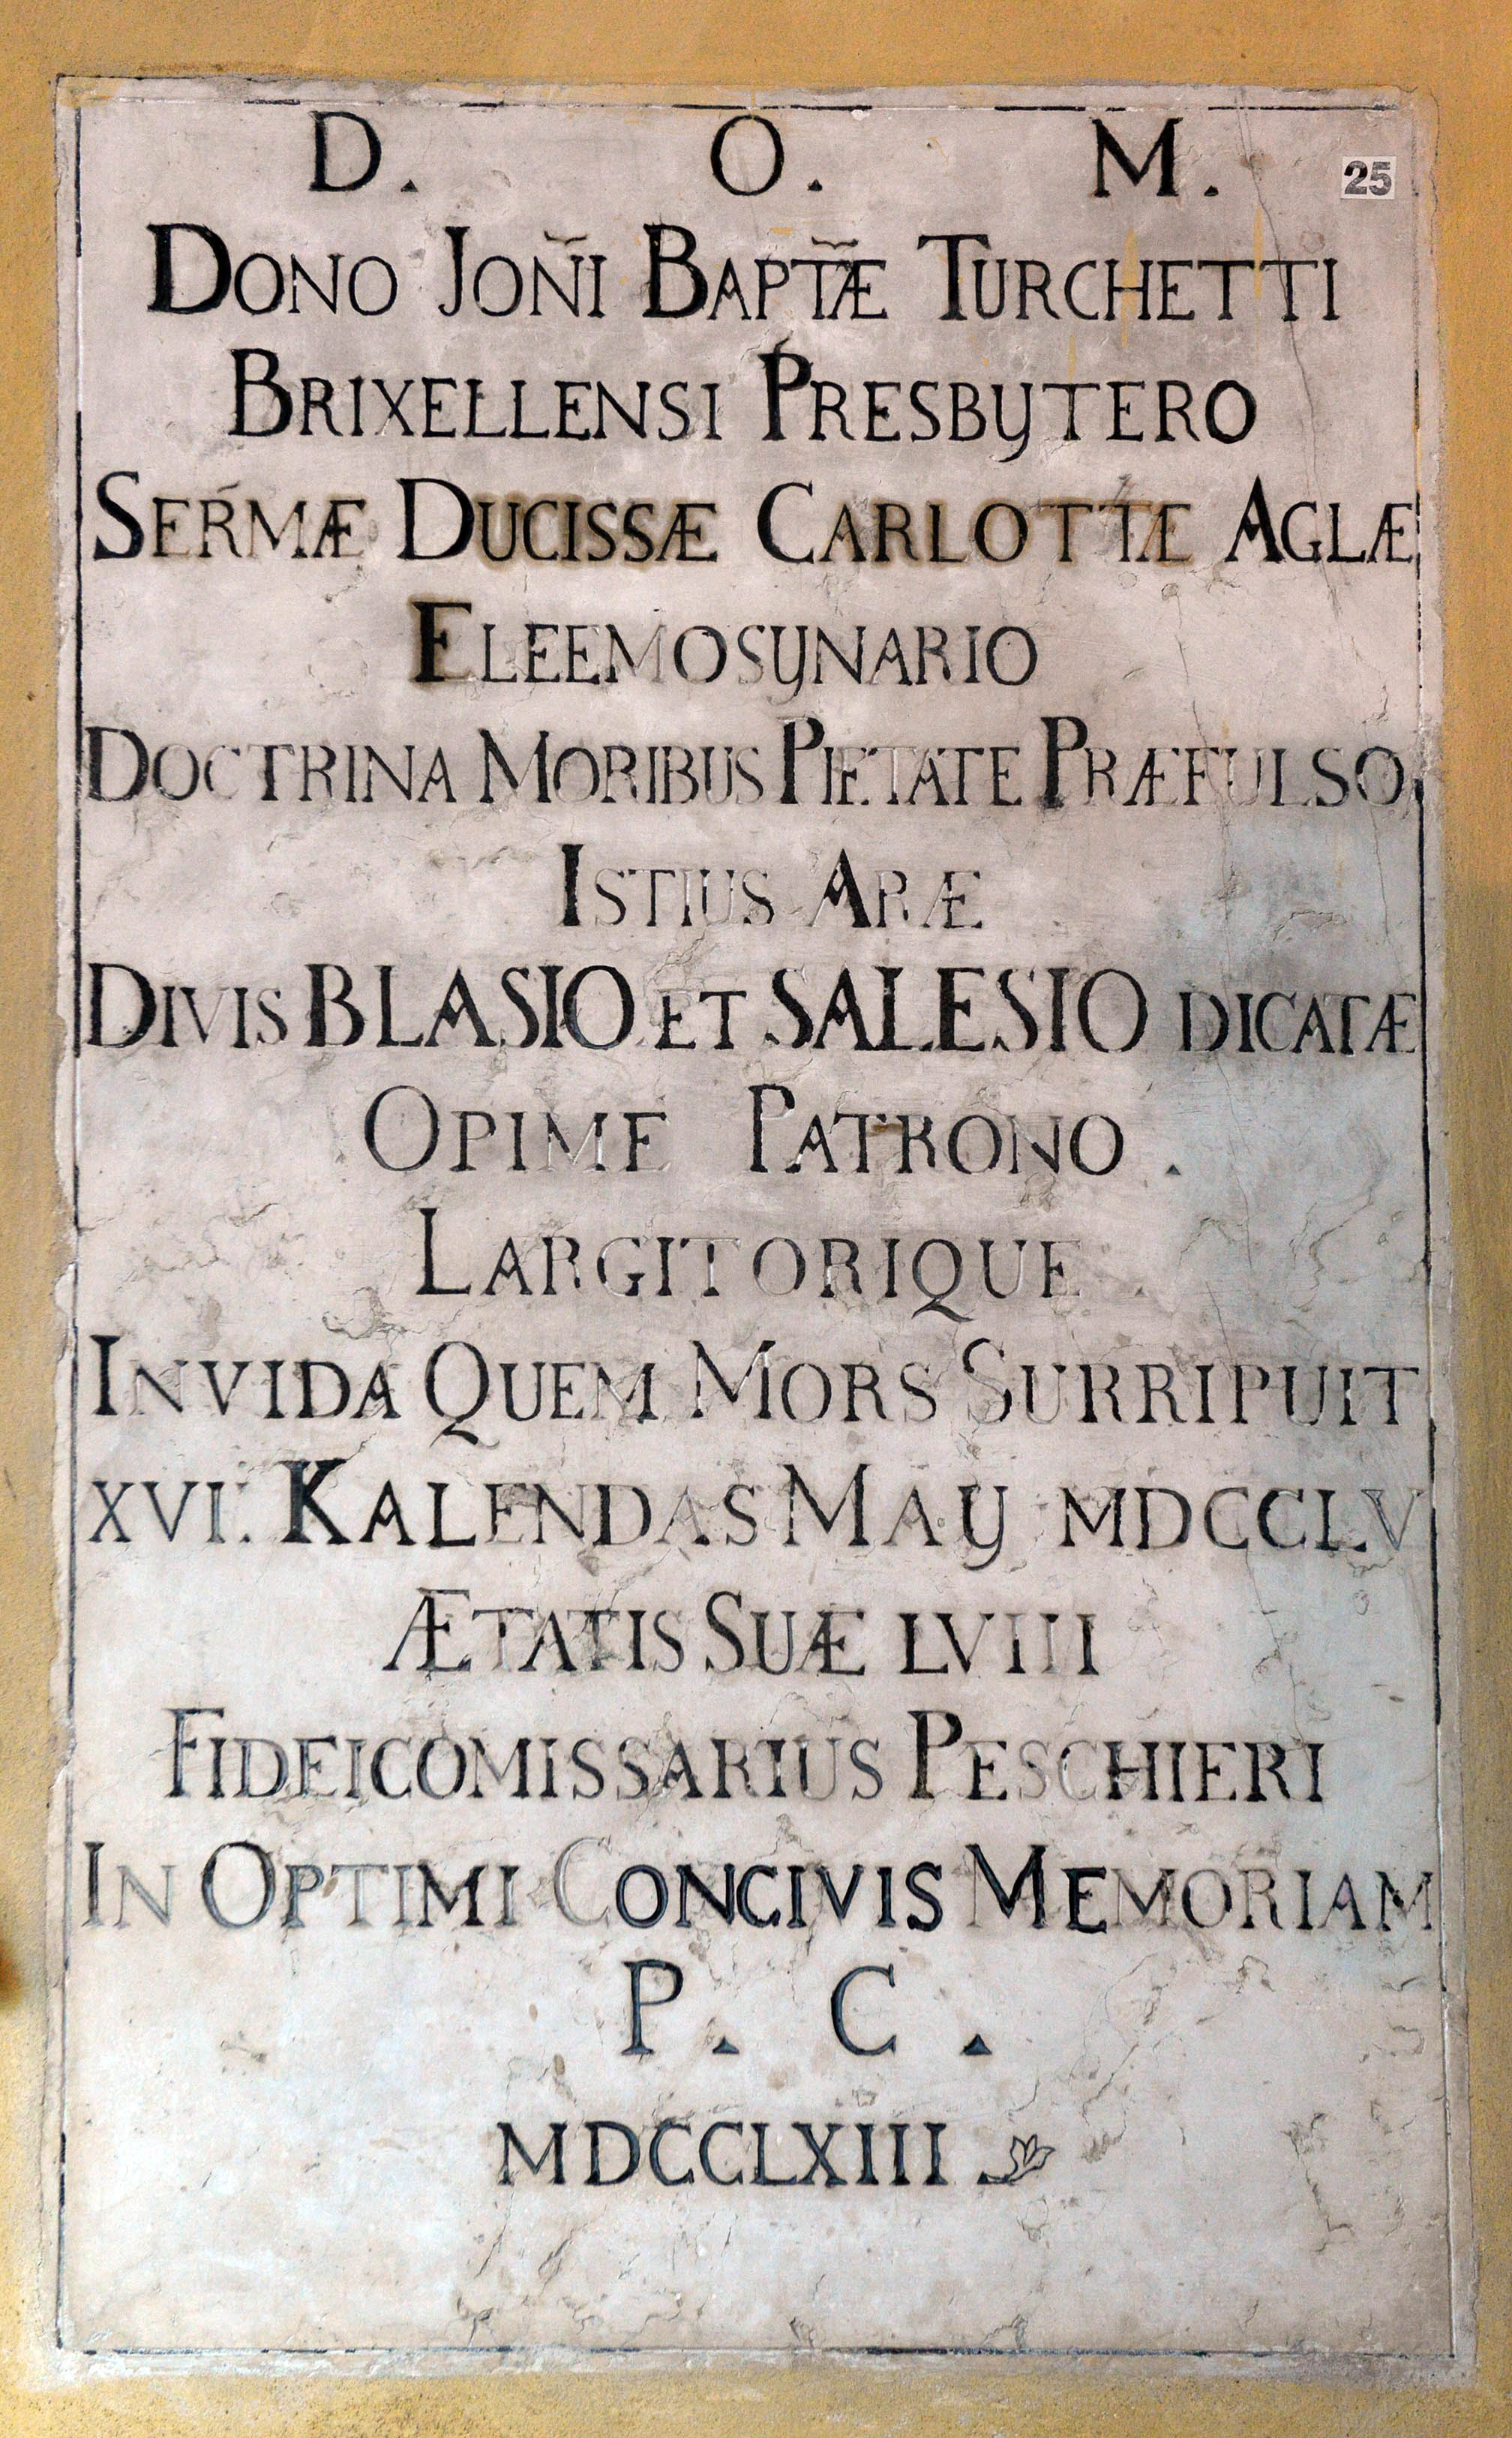 D. O. M.
25
DONO JOÑI BAPTÆ̃ TURCHETTI
BRIXELLENSI PRESBYTERO
SERM̃Æ DUCISSÆ CARLOTTÆ AGLÆ
ELEEMOSYNARIO
DOCTRINA MORIBUS PIETATE PRÆFULSO
ISTIUS ARÆ
DIVIS BLASIO ET SALESIO DICATÆ
OPIME PATRONO.
LARGITORIQUE
INVIDA QUEM MORS SURRIPUIT
XVI. KALENDAS MAY MDCCLV
ÆTATIS SUÆ LVIII
FIDEICOMISSARIUS PESCHIERI
IN OPTIMI CONCIVIS MEMORIAM
P. C.
MDCCLXIII